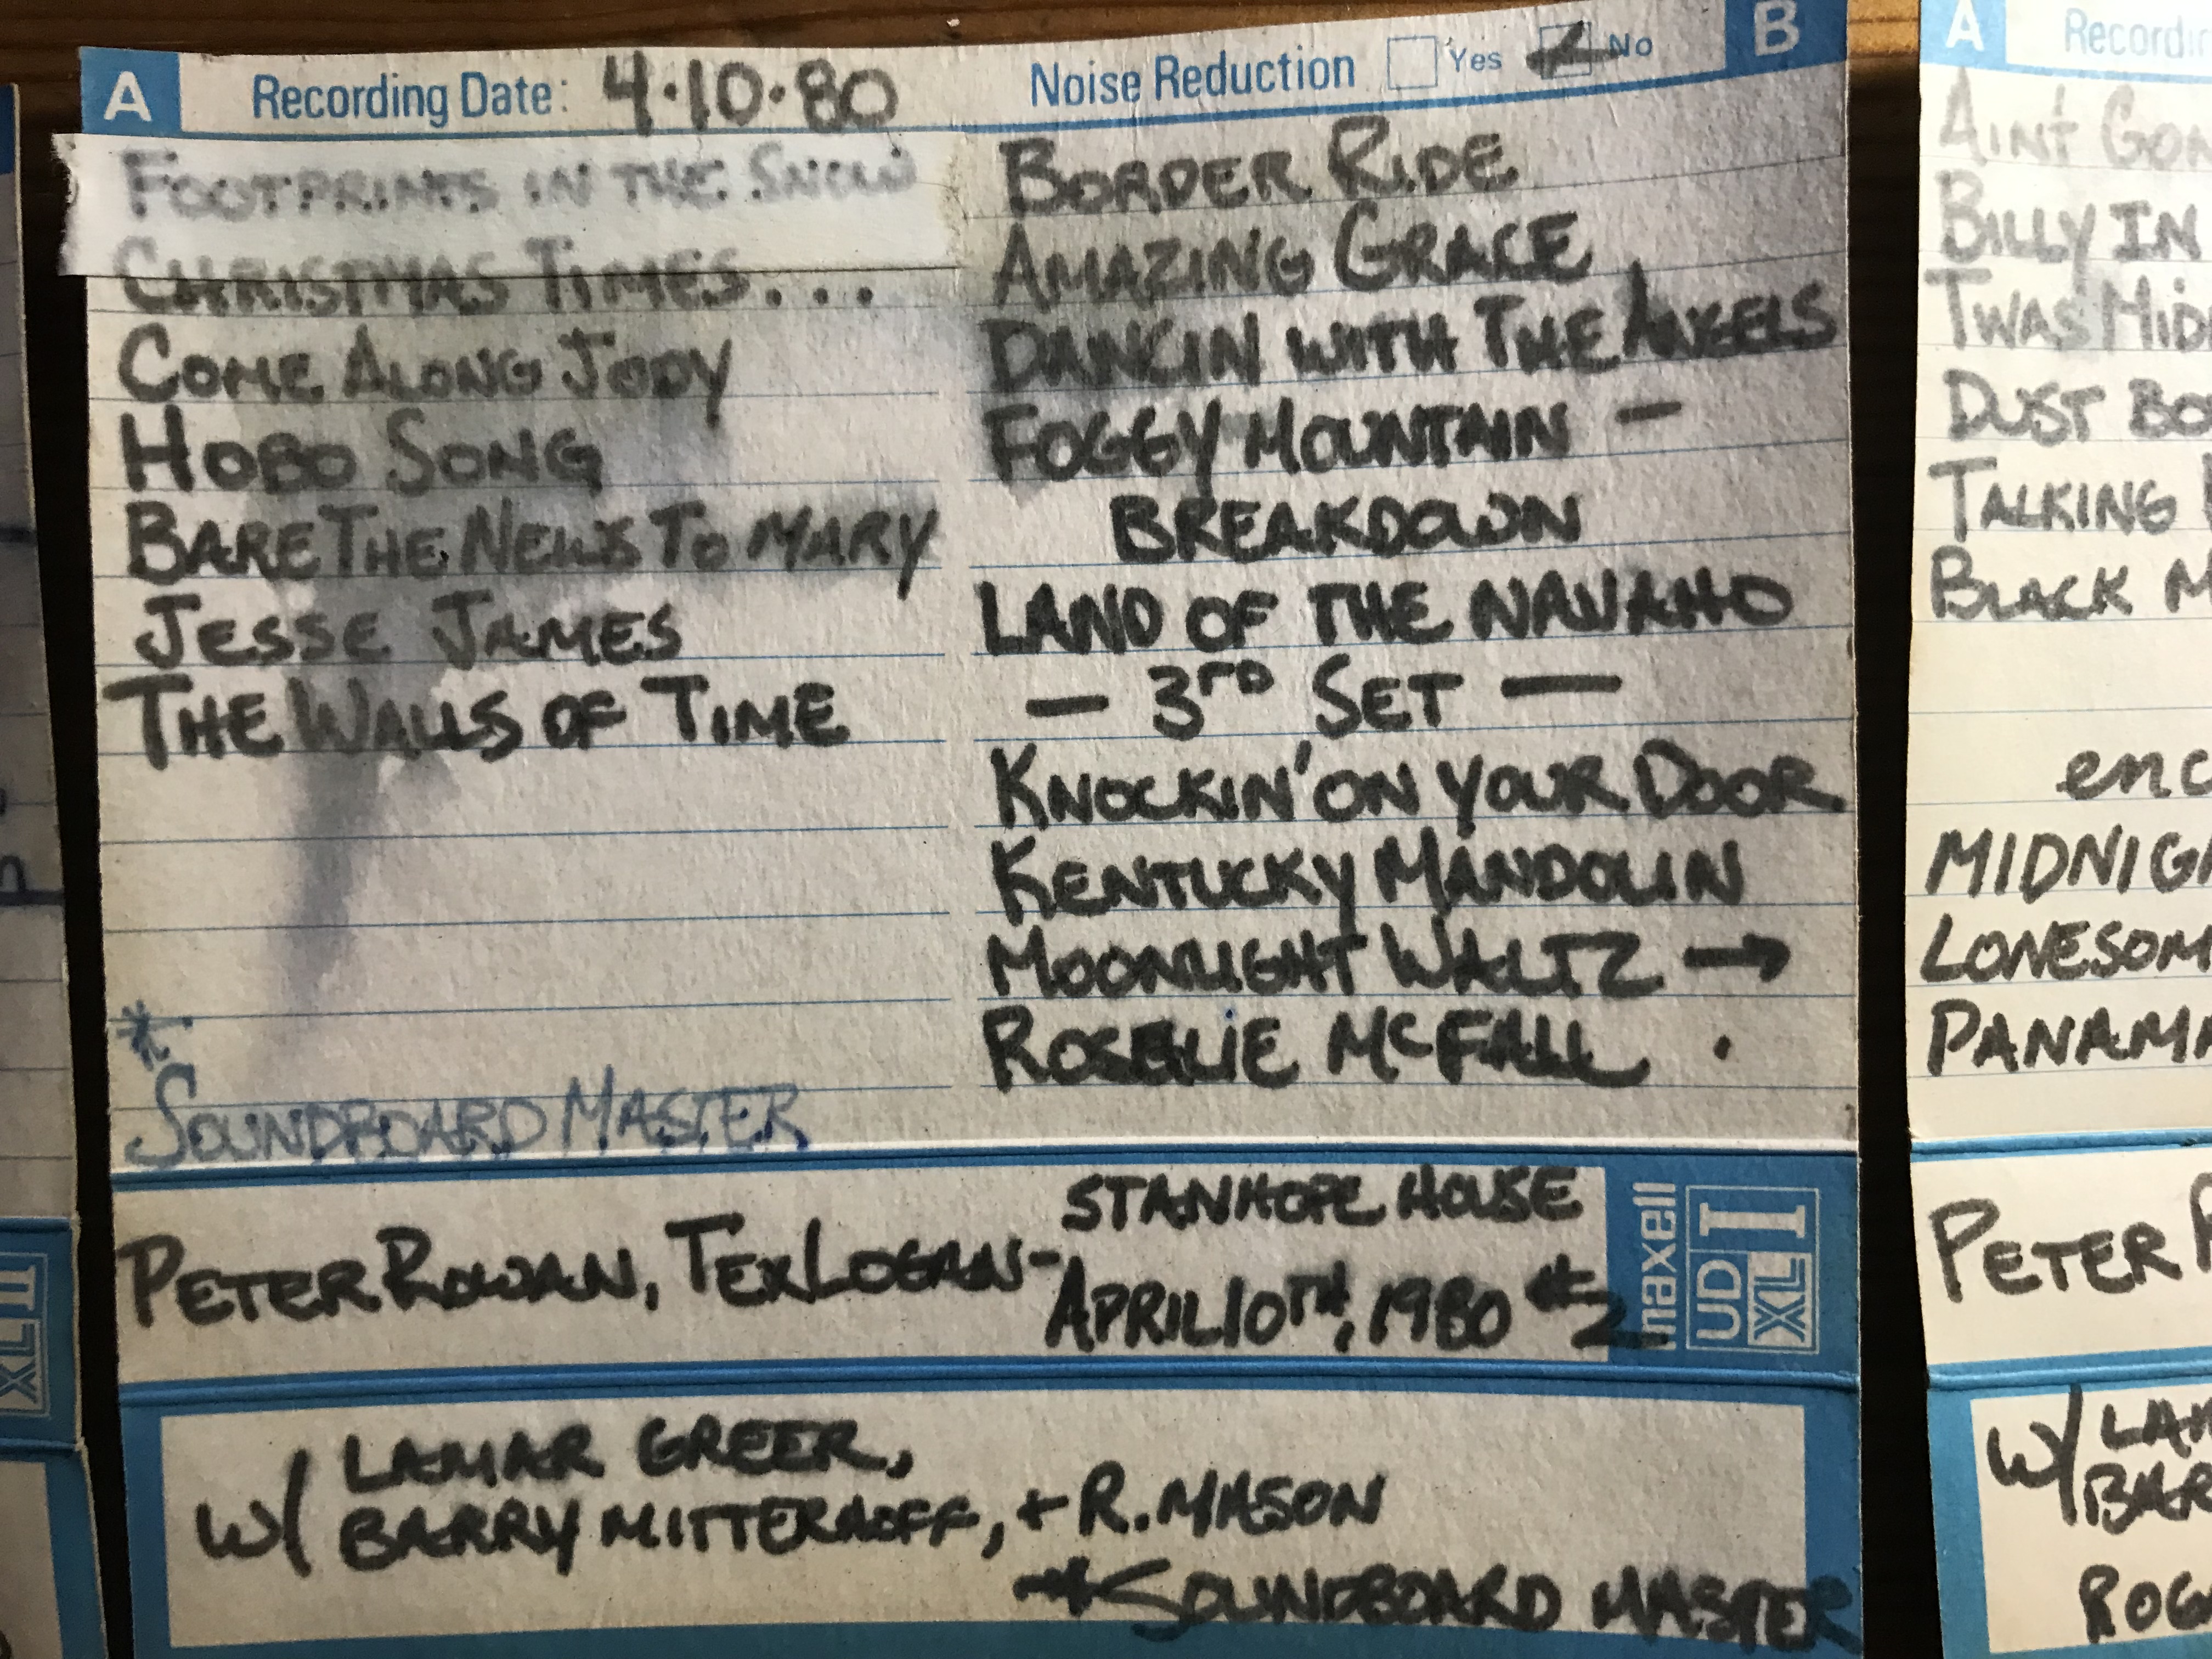 XLII
A Recording Date: 4·10·80 Noise Reduction Yes No B
FOOTPRINTS IN THE SNOW
CHRISTMAS TIMES....
COME ALONG JODY
HOBO SONG
BARE THE NEWS TO MARY
JESSE JAMES
THE WALLS OF TIME
* SOUNDBOARD MASTER
BORDER RIDE
AMAZING GRACE
DANCIN WITH THE ANGELS
FOGGY MOUNTAIN -
BREAKDOWN
LAND OF THE NAVAHO
— 3RD SET —
KNOCKIN' ON YOUR DOOR
KENTUCKY MANDOLIN
MOONLIGHT WALTZ →
ROSELIE MCFALL .
STANHOPE HOUSE
PETER ROWAN, TEX LOGAN - APRIL 10TH, 1980 #2
maxell
UD XL I
LAMAR GREER,
W/ BARRY MITTERHOFF, + R. MASON
SOUNDBOARD MASTER
A Recordi
AINT GON
BILLY IN
TWAS MID
DUST BO
TALKING
BLACK M
enc
MIDNIGH
LONESOM
PANAMA
PETER R
W/ LAM
BAR
ROG